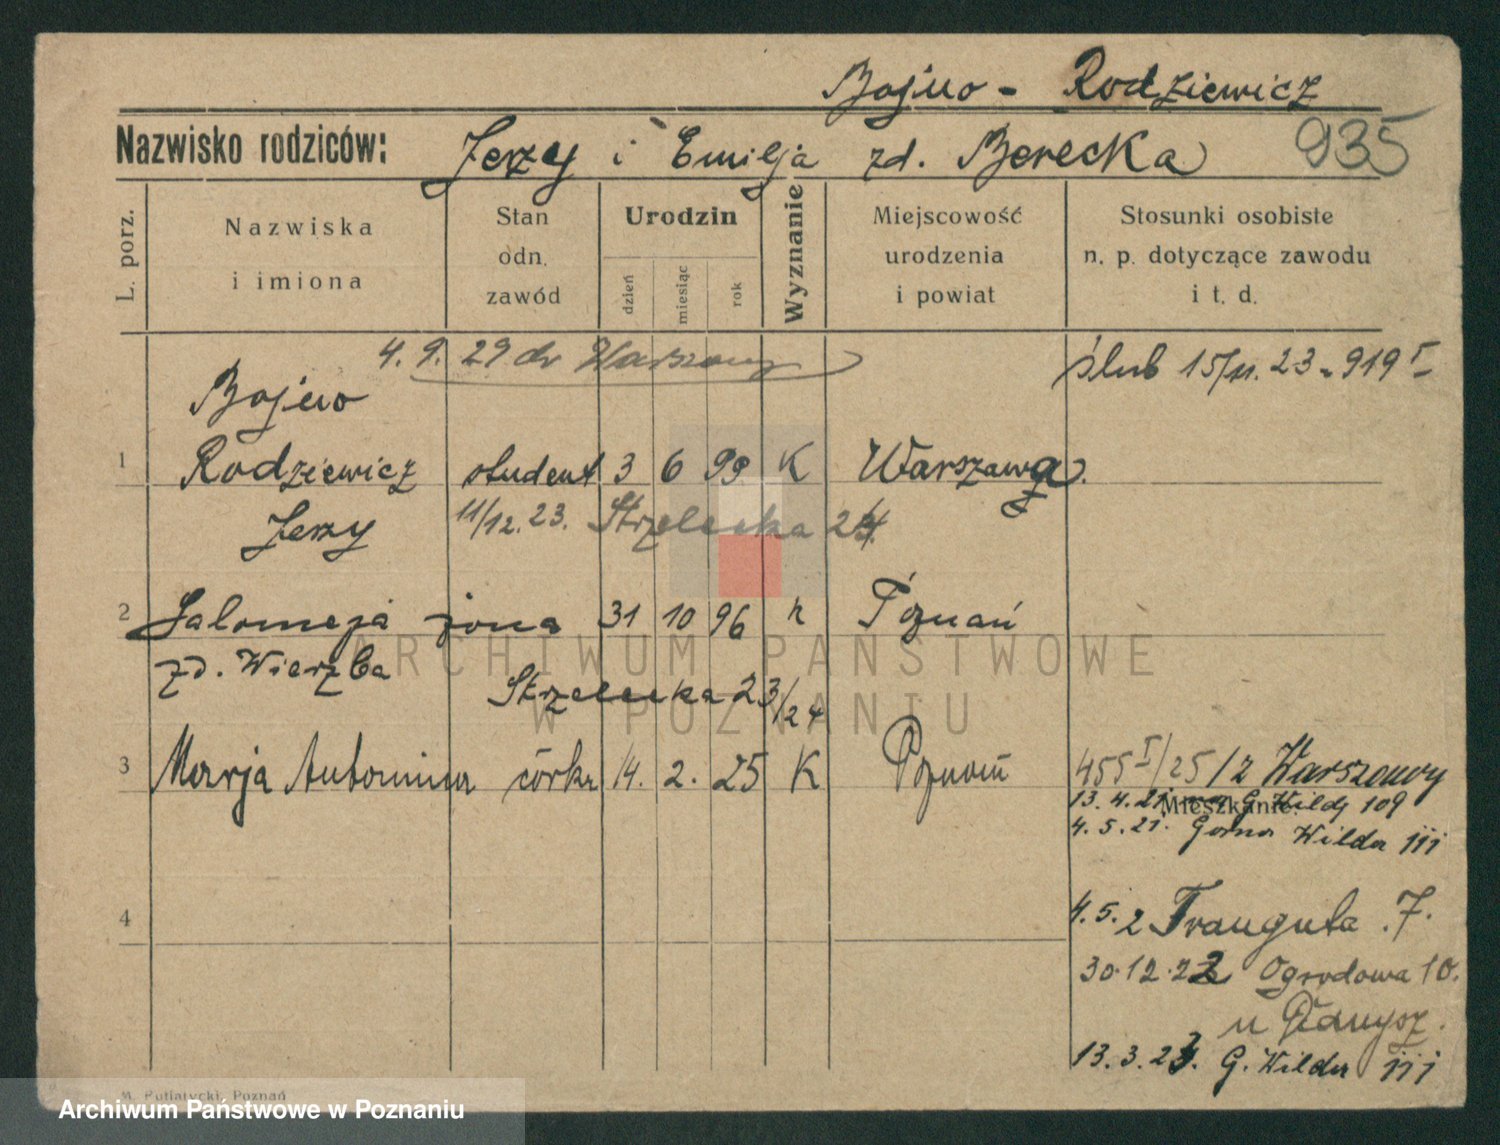 Bojno - Rodziewicz
Nazwisko rodziców: Jerzy i Emilja zd. Berecka 935
L. porz.
Nazwiska i imiona
Stan odn. zawód
Urodzin
dzień
miesiąc
rok
Wyznanie
Miejscowość urodzenia i powiat
Stosunki osobiste n. p. dotyczące zawodu i t. d.
4. 9. 29 do Warszawy
ślub 15/11. 23 - 919 I
Bojno
1 Rodziewicz student 3 6 99 K Warszawa
Jerzy 11/12. 23. Strzelecka
2 Salomeja żona 31 10 96 k Poznań
zd. Wierzba
Strzelecka 23/24
3 Marja Antonina córka 14. 2. 25 K Poznań 455 I/25/2 Warszawy
Mieszkanie:
13. 4. 21. G. Wilda 109
4. 5. 21. Górna Wilda 111
4
4. 5. 2 Trauguta 7.
30. 12. 22 Ogrodowa 10.
13. 3. 23. G. Wilda 111
M. Putiatycki, Poznań
ARCHIWUM PAŃSTWOWE
W POZNANIU
Archiwum Państwowe w Poznaniu